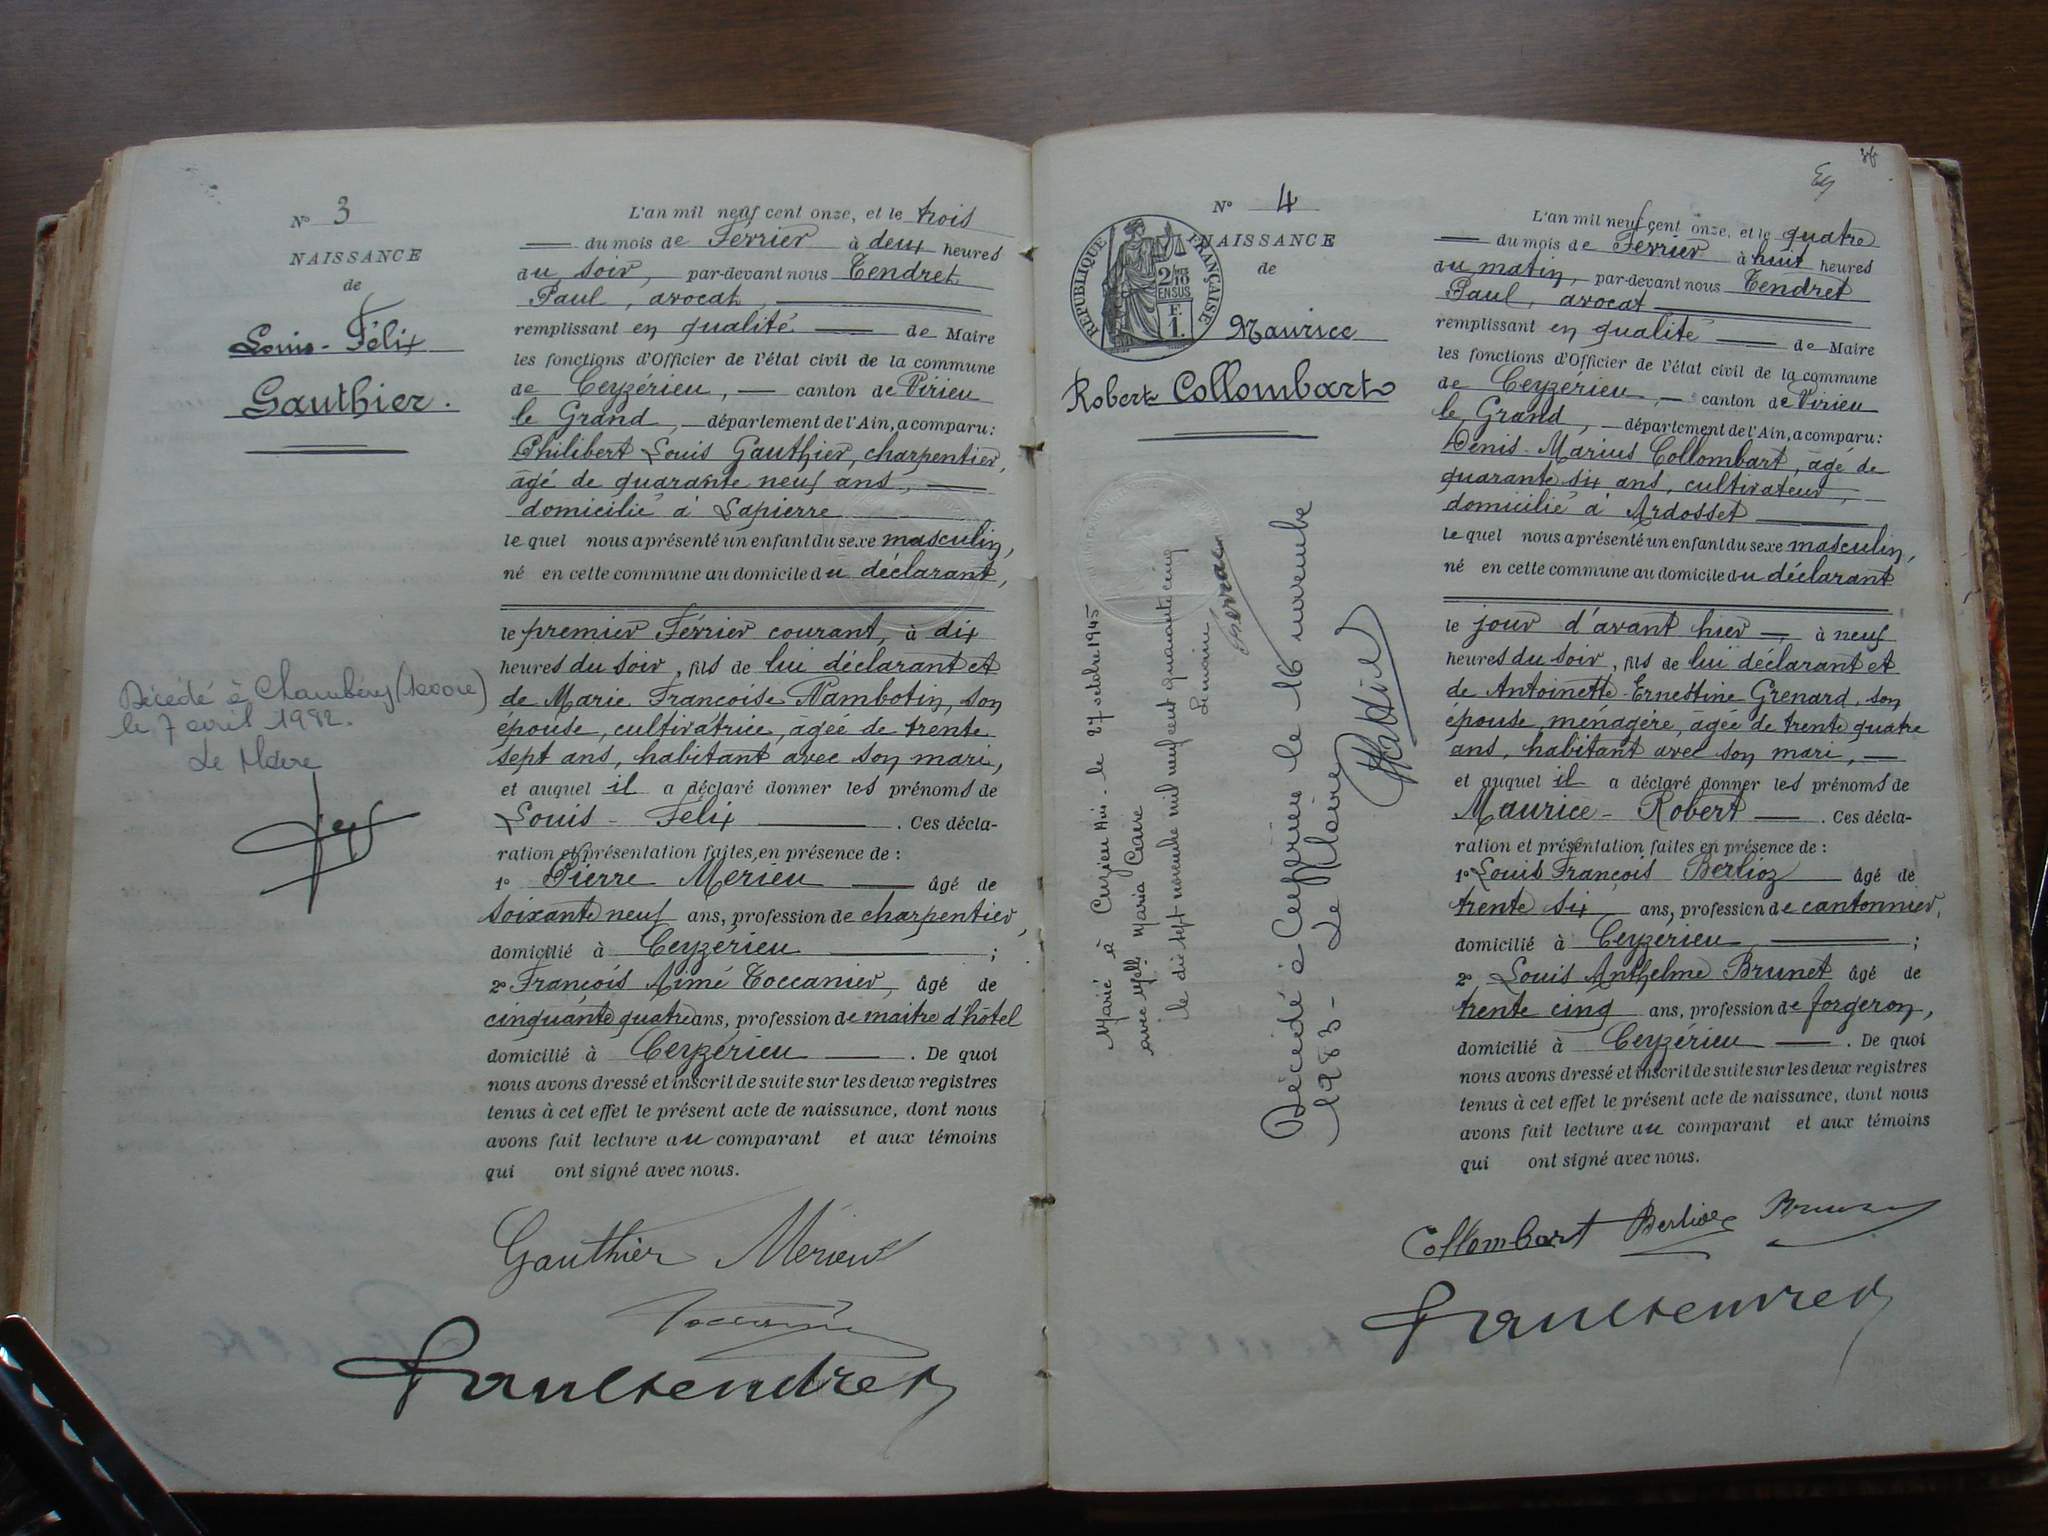 N° 3
NAISSANCE
de
Louis-Félix
Gauthier.
Décédé à Chambéry (Savoie)
le 7 avril 1982.
Le Maire
L'an mil neuf cent onze, et le trois
du mois de Février à deux heures
du soir, par-devant nous Tendret
Paul, avocat,
remplissant en qualité de Maire
les fonctions d'Officier de l'état civil de la commune
de Ceyzérieu, canton de Virieu
le Grand, département de l'Ain, a comparu:
Philibert Louis Gauthier, charpentier,
âgé de quarante neuf ans,
domicilié à Lapierre
le quel nous a présenté un enfant du sexe masculin,
né en cette commune au domicile du déclarant,
le premier Février courant, à dix
heures du soir, fils de lui déclarant et
de Marie Françoise Pambotin, son
épouse, cultivatrice, âgée de trente
sept ans, habitant avec son mari,
et auquel il a déclaré donner les prénoms de
Louis-Félix. Ces décla-
ration et présentation faites, en présence de:
1° Pierre Mérieu âgé de
soixante neuf ans, profession de charpentier,
domicilié à Ceyzérieu;
2° François Aimé Toccanier, âgé de
cinquante quatre ans, profession de maître d'hôtel
domicilié à Ceyzérieu. De quoi
nous avons dressé et inscrit de suite sur les deux registres
tenus à cet effet le présent acte de naissance, dont nous
avons fait lecture au comparant et aux témoins
qui ont signé avec nous.
Gauthier Mérieu
Toccanier
Paul Tendret
N° 4
NAISSANCE
de
REPUBLIQUE FRANÇAISE
2/10
EN SUS
F.
1.
Maurice
Robert Collombart
Marié à Cuzieu Ain - le 27 octobre 1945
avec Melle Maria Claire
le dix sept novembre mil neuf cent quarante cinq
Le maire
Décédé à Ceyzérieu le 16 novembre
1983 - Le Maire
L'an mil neuf cent onze, et le quatre
du mois de Février à huit heures
du matin, par-devant nous Tendret
Paul, avocat
remplissant en qualité de Maire
les fonctions d'Officier de l'état civil de la commune
de Ceyzérieu, canton de Virieu
le Grand, département de l'Ain, a comparu:
Denis-Marius Collombart, âgé de
quarante six ans, cultivateur,
domicilié à Ardosset
le quel nous a présenté un enfant du sexe masculin,
né en cette commune au domicile du déclarant
le jour d'avant hier, à neuf
heures du soir, fils de lui déclarant et
de Antoinette-Ernestine Grenard, son
épouse, ménagère, âgée de trente quatre
ans, habitant avec son mari,
et auquel il a déclaré donner les prénoms de
Maurice-Robert. Ces décla-
ration et présentation faites en présence de:
1° Louis François Berlioz âgé de
trente six ans, profession de cantonnier,
domicilié à Ceyzérieu;
2° Louis Anthelme Brunet âgé de
trente cinq ans, profession de forgeron,
domicilié à Ceyzérieu. De quoi
nous avons dressé et inscrit de suite sur les deux registres
tenus à cet effet le présent acte de naissance, dont nous
avons fait lecture au comparant et aux témoins
qui ont signé avec nous.
Collombart Berlioz Brunet
Paul Tendret